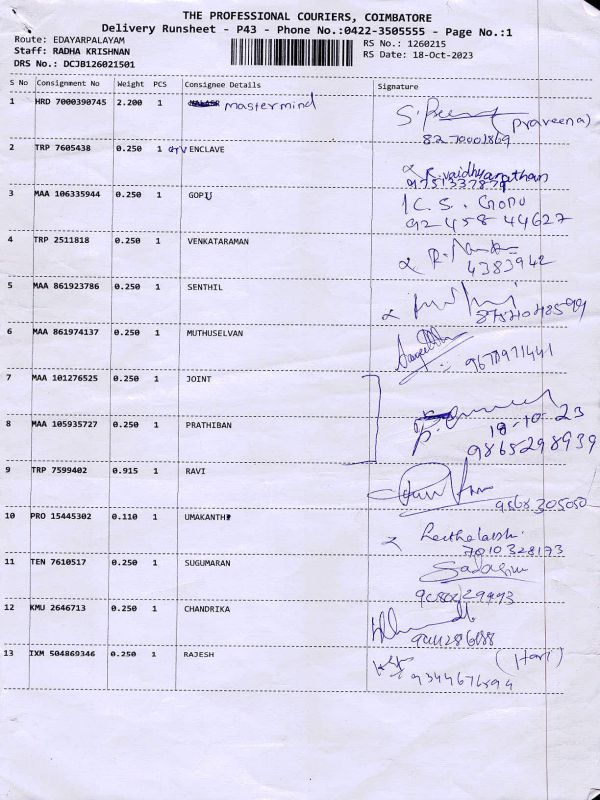 THE PROFESSIONAL COURIERS, COIMBATORE
Delivery Runsheet - P43 - Phone No.:0422-3505555 - Page No.:1
Route: EDAYARPALAYAM
Staff: RADHA KRISHNAN
DRS No.: DCJB126021501
RS No.: 1260215
RS Date: 18-Oct-2023
S No Consignment No Weight PCS Consignee Details Signature
1 HRD 7000390745 2.200 1 mastermind
(praveena)
2 TRP 7605438 0.250 1 GTV ENCLAVE
R. vaidhyanathan
9751337879
3 MAA 106335944 0.250 1 GOPU
C. S. GOPU
92 458 44627
4 TRP 2511818 0.250 1 VENKATARAMAN
4383942
5 MAA 861923786 0.250 1 SENTHIL
6 MAA 861974137 0.250 1 MUTHUSELVAN
7 MAA 101276525 0.250 1 JOINT
8 MAA 105935727 0.250 1 PRATHIBAN
18-10-23
9865298939
9 TRP 7599402 0.915 1 RAVI
9568305050
10 PRO 15445302 0.110 1 UMAKANTH
7010328173
11 TEN 7610517 0.250 1 SUGUMARAN
12 KMU 2646713 0.250 1 CHANDRIKA
13 IXM 504869346 0.250 1 RAJESH
(Hari)